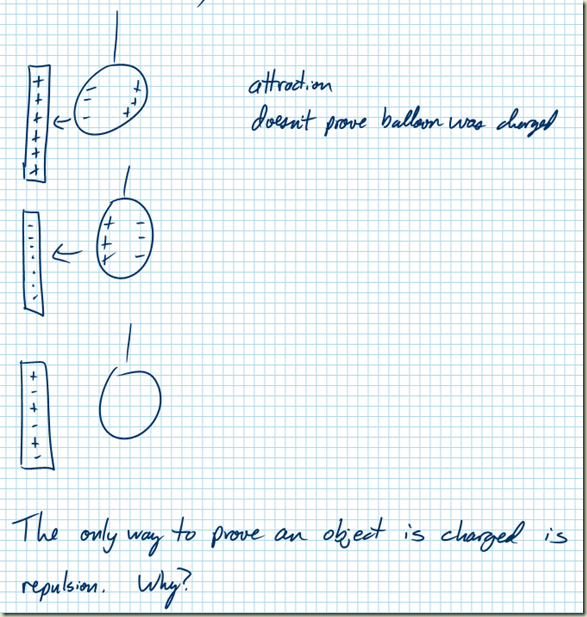 attraction
doesn't prove balloon was charged
The only way to prove an object is charged is
repulsion. Why?